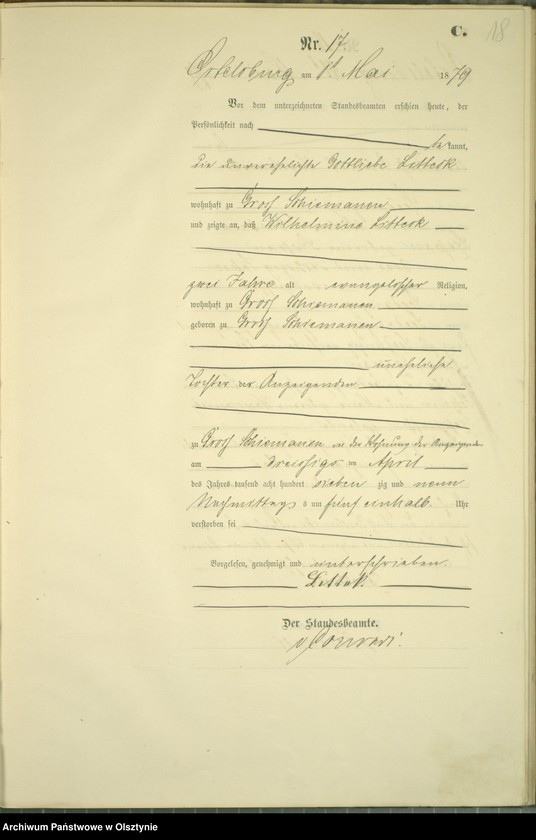 C. 18
Nr. 17.
Ortelsburg am 1t Mai 1879
Vor dem unterzeichneten Standesbeamten erschien heute, der
Persönlichkeit nach
be kannt,
die unverehelichte Gottliebe Litteck
wohnhaft zu Groß Schiemanen
und zeigte an, daß Wilhelmine Litteck
zwei Jahre alt evangelischer Religion,
wohnhaft zu Groß Schiemanen
geboren zu Groß Schiemanen
uneheliche
Tochter der Anzeigenden
zu Groß Schiemanen in der Wohnung der Anzeigenden
am dreißigs ten April
des Jahres tausend acht hundert sieben zig und neun
Nachmittags um fünf einhalb Uhr
verstorben sei
Vorgelesen, genehmigt und unterschrieben
Littek.
Der Standesbeamte.
v Conradi.
Archiwum Państwowe w Olsztynie